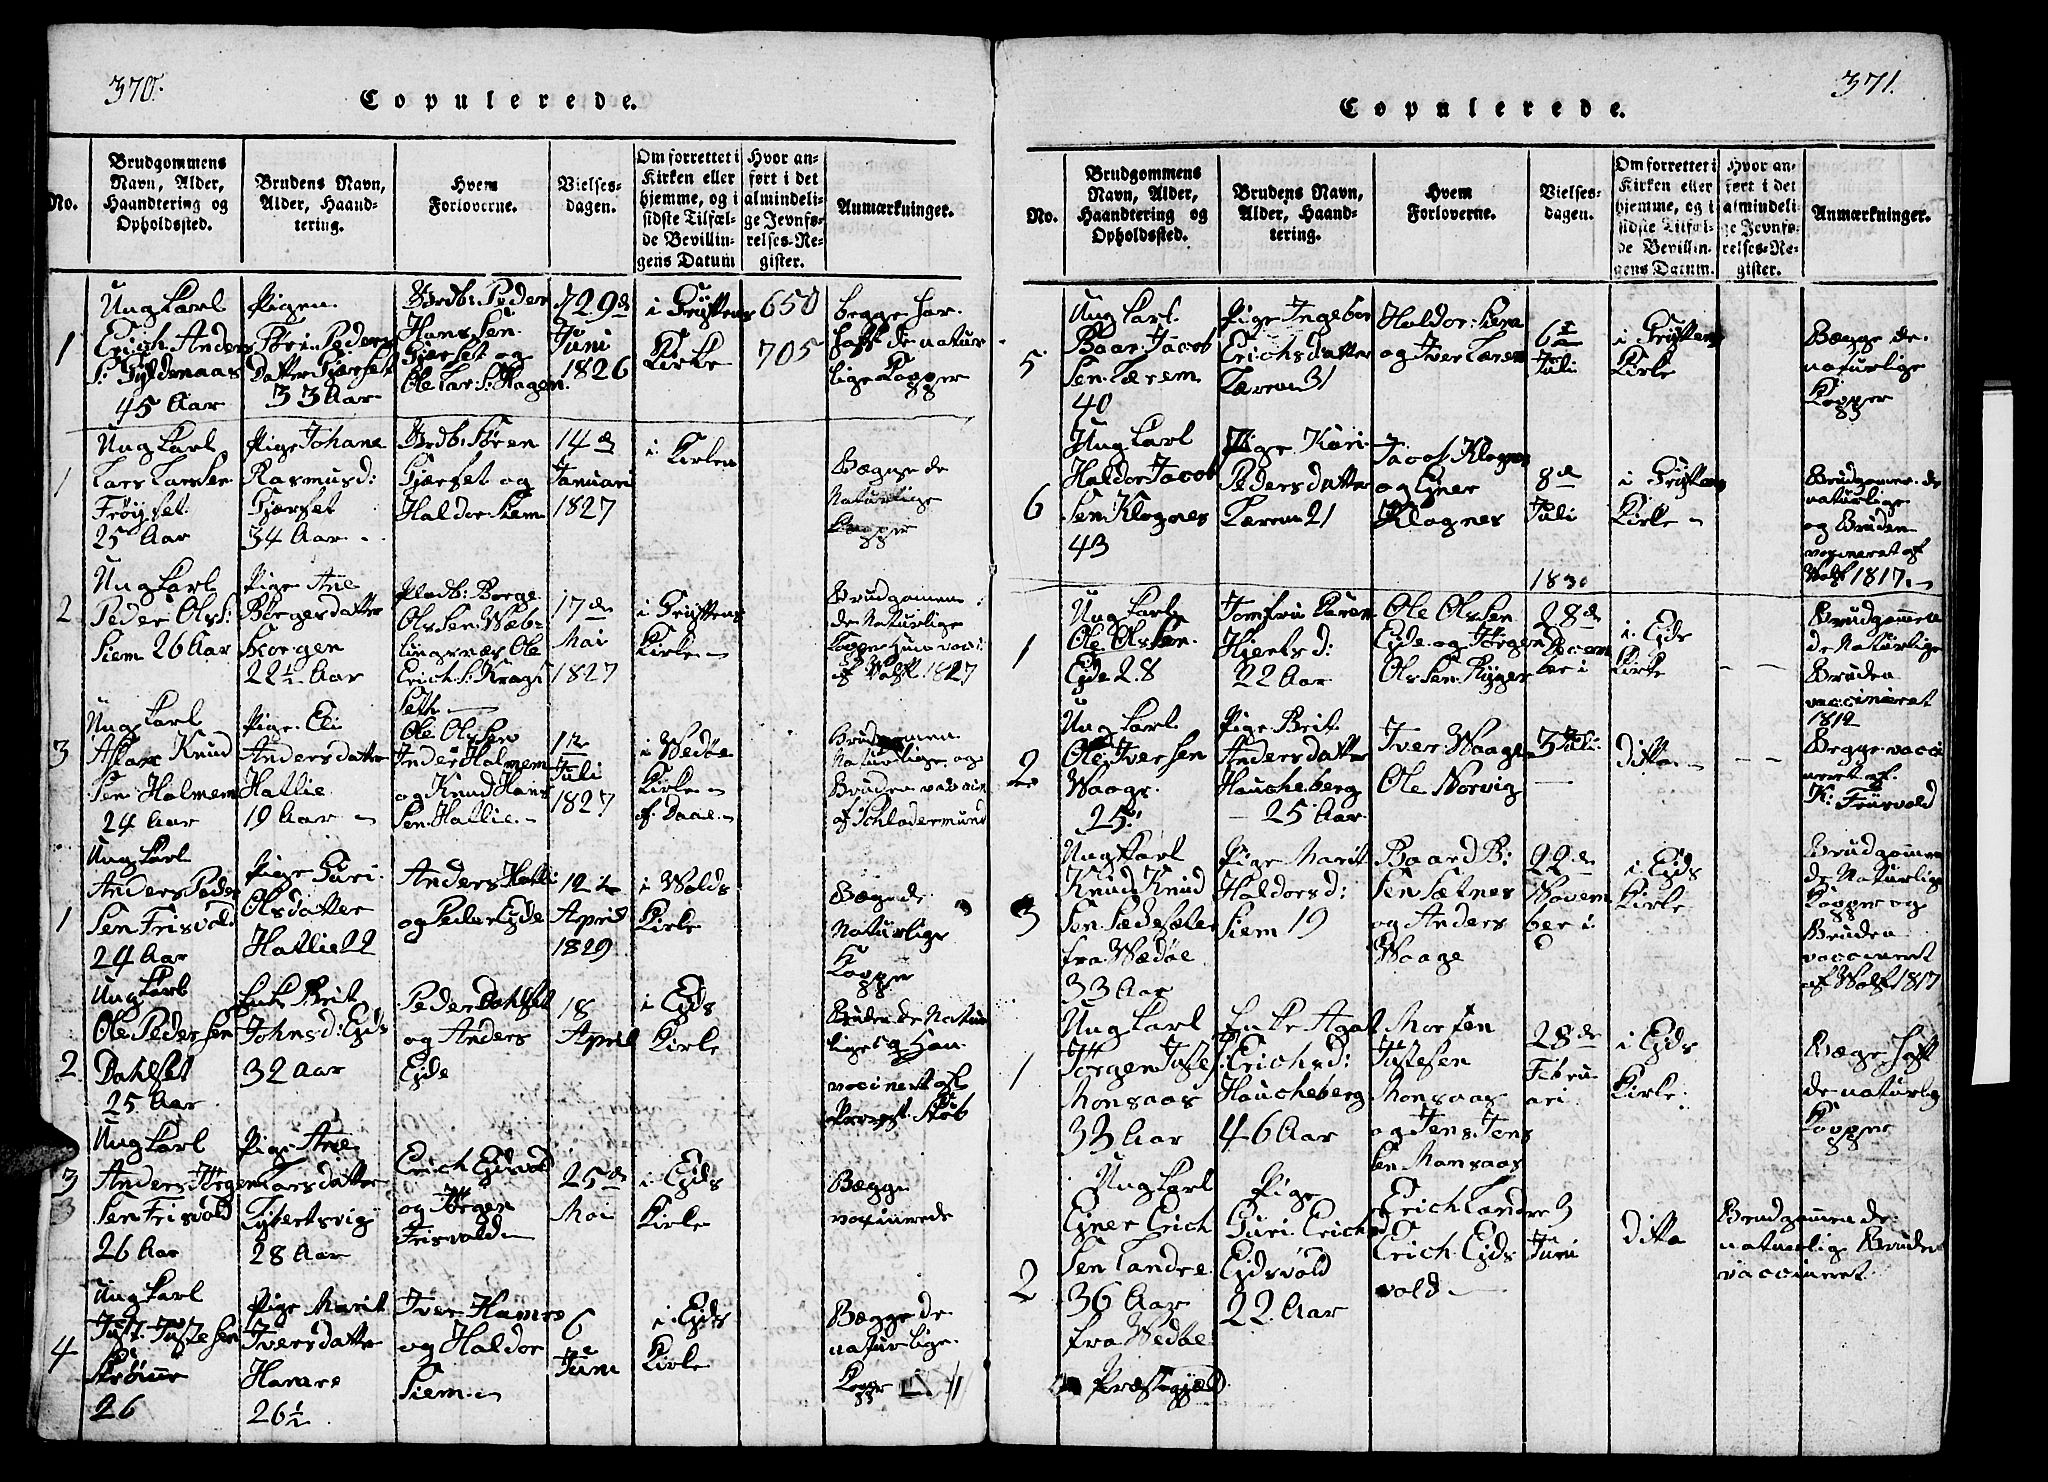 370.
Copulerede.
No.
Brudgommens
Navn, Alder,
Haandtering og
Opholdssted.
Brudens Navn,
Alder, Haand-
tering.
Hvem
Forloverne.
Vielses-
dagen.
Om forrettet i
Kirken eller
hjemme, og i
sidste Tilfæl-
de Bevillin-
gens Datum
Hvor an-
ført i det
almindeli-
ge Jevnfø-
relses-Re-
gister.
Anmærkninger.
1
Ung Karl
Erich Anders
S: Gyldenaas
45 Aar
Pigen
Peders
Datter Gjerset
33 Aar
Peder
Hanssen
Gjerset og
Ole Lar S: Hagen
29de
Juni
1826
i
Kirke
650
705
begge har
haft de natur
lige Kopper
1
Ung Karl
Lars Larssen
Frøiset
25 Aar
Pige Johane
Rasmusd:
Gjerset
34 Aar
Søren
Gjerset og
Haldor Siem
14de
Januari
1827
i Kirken
Begge de
Naturlige
Kopper
2
Ung Karl
Peder Olss:
Siem 26 Aar
Pige Ane
Børgesdatter
22½ Aar
Børge
Olssen Wæb-
lungsnæs Ole
Erich S: Kragi
Seth
17de
Mai
1827
i
Kirke
Brudgomen
de Naturlige
Kopper
1827
3
Ung Karl
Knud
Sen Holmem
24 Aar
Pige Eli
Andersdatter
Hatlie
19 Aar
Ole Olssen
Holmem
og Knud Hans
Sen Hatlie
1te
Juli
1827
i Wedøe
Kirke
af Daae
Brudgomen
Naturlige og
Bruden
af
1
Ung Karl
Anders Peder
Sen Frisvold
24 Aar
Pige Guri
Olsdatter
Hatlie 22
Anders Hatli
og Peder Eyde
12te
April
1829
i Wolds
Kirke
Begge de
Naturlige
Kopper
2
Ung Karl
Ole Pedersen
Dahlset
25 Aar
Enke Brit
Johnsd: Eyds
32 Aar
Peder Dahlset
og Anders
Eyde
18
April
i Eyds
Kirke
Bruden de Natur
lige og Han
vaccineret af
3
Ung Karl
Anders Jørgen
Sen Frisvold
26 Aar
Pige Ane
Larsdatter
28 Aar
Erich Eydsvold
og Jørgen
Frisvold
25de
Mai
i Eyds
Kirke
Begge
vaxinerede
4
Ung Karl
Just Justesen
26
Pige Marit
Iversdatter
Hamre
26½
Iver Hamre
og Haldor
Siem
6
Juni
i Eyds
Kirke
Begge de
naturlige
Kopper
371.
Copulerede.
No.
Brudgommens
Navn, Alder,
Haandtering og
Opholdssted.
Brudens Navn,
Alder, Haand-
tering.
Hvem
Forloverne.
Vielses-
dagen.
Om forrettet i
Kirken eller
hjemme, og i
sidste Tilfæl-
de Bevillin-
gens Datum.
Hvor an-
ført i det
almindeli-
ge Jevnfø-
relses-Re-
gister.
Anmærkninger.
5
Ung Karl
Baar Jacob
Sen Særem
40
Pige Ingebor
Erichsdatter
Særem 31
Haldor Siem
og Iver Særem
6te
Juli
i
Kirke
Begge de
naturlige
Kopper
6
Ung Karl
Haldor Jacob
Sen Klognes
43
Pige Kari
Pedersdatter
Særem 21
Jacob Klognes
og Einer
Klognes
8de
Juli
i
Kirke
Brudgomen de
naturlige
og Bruden
vaxineret af
1817
1830
1
Ung Karl
Ole Olssen
Eyde 28
Jomfru Karen
Hjertsd:
22 Aar
Ole Olssen
Eyde og Jørgen
Olssen Ryger
28de
Decem
beri
i Eyds
Kirke
Brudgommen
de Naturlige
Bruden
vaccineret
1812
2
Ung Karl
Ole Iversen
Waage
25
Pige Brit
Andersdatter
Haucheberg
25 Aar
Iver Waage
Ole Norvig
3 Juli
Ditto
Begge vacci
neret af
K: Frisvold
3
Ung Karl
Knud Knud
Sen
fra Wedøe
33 Aar
Pige Marit
Haldorsd:
Siem 19
Baard B:
Sen Sætnes
og Anders
Waage
22de
Novem
beri
i Eyds
Kirke
Brudgommen
de Naturlige
Kopper og
Bruden
vaccineret
af 1817
1
Ung Karl
Jørgen Justes:
Monsaas
33 Aar
Enke Agat
Erichsd:
Haucheberg
46 Aar
Morten
Justesen
Monsaas
og Jens Jens
Sen Monsaas
28de
Febru
ari
i Eyds
Kirke
Begge haft
de naturlig
Kopper
2
Ung Karl
Einer Erich
Sen Landre
36 Aar
fra Wedøe
Præstegjeld
Pige
Guri Erichsd
Eydsvold
22 Aar
Erich Landre
Erich Eyds
vold
3
Juni
Ditto
Brudgommen de
naturlig Bruden
vaccineret